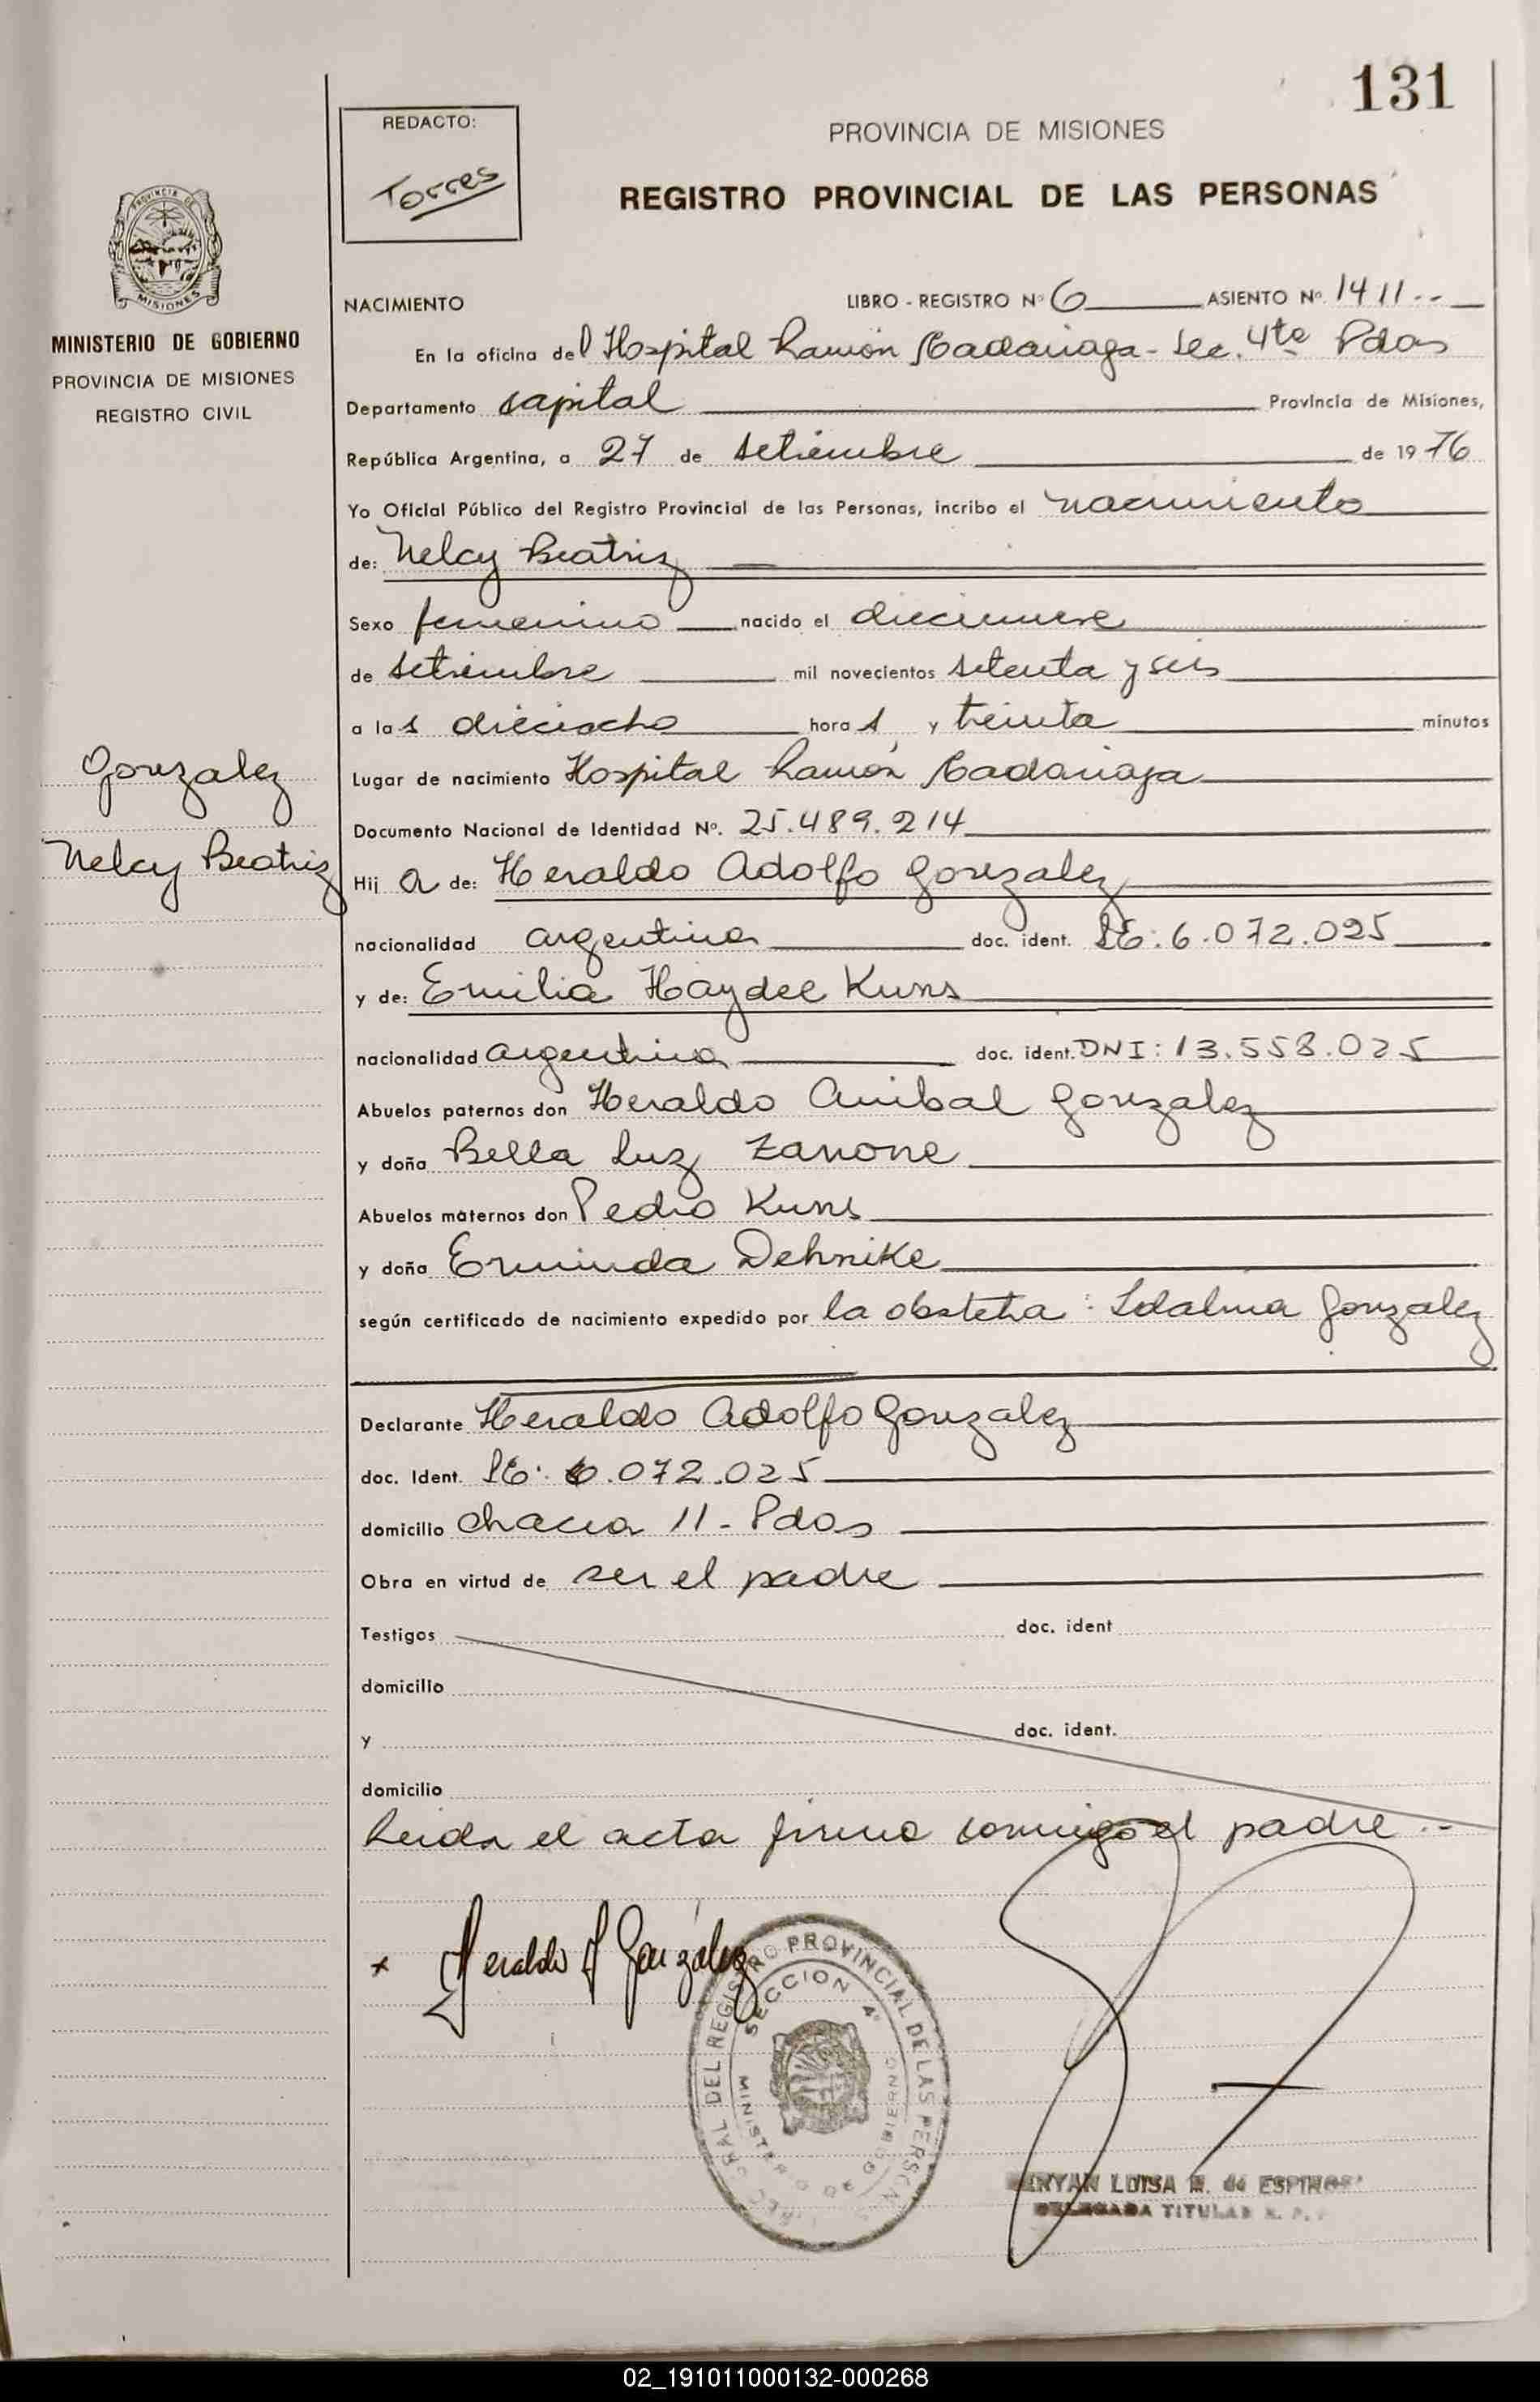 131
REDACTO:
Torres
PROVINCIA DE MISIONES
REGISTRO PROVINCIAL DE LAS PERSONAS
PROVINCIA DE
MISIONES
MINISTERIO DE GOBIERNO
PROVINCIA DE MISIONES
REGISTRO CIVIL
NACIMIENTO LIBRO - REGISTRO Nº 6 ASIENTO Nº. 1411
En la oficina del Hospital Ramón Madariaga - Sec. 4ta Pdas
Departamento capital Provincia de Misiones,
República Argentina, a 27 de setiembre de 1976
Yo Oficial Público del Registro Provincial de las Personas, incribo el nacimiento
de: Nelcy Beatriz
Sexo femenino nacido el diecinueve
de setiembre mil novecientos setenta y seis
a las dieciocho horas y treinta minutos
Gonzalez
Nelcy Beatriz
Lugar de nacimiento Hospital Ramón Madariaga
Documento Nacional de Identidad Nº. 25.489.214
Hija de: Heraldo Adolfo Gonzalez
nacionalidad argentina doc. ident. LE: 6.072.025
y de: Emilia Haydee Kuns
nacionalidad argentina doc. ident. DNI: 13.558.025
Abuelos paternos don Heraldo Anibal Gonzalez
y doña Bella Luz Zanone
Abuelos maternos don Pedro Kuns
y doña Erminda Dehnike
según certificado de nacimiento expedido por la obstetra: Idalina Gonzalez
Declarante Heraldo Adolfo Gonzalez
doc. Ident. LE: 6.072.025
domicilio chacra 11 - Pdas
Obra en virtud de ser el padre
Testigos doc. ident
domicilio
y doc. ident.
domicilio
Leida el acta firma conmigo el padre
x Heraldo A González
DEL REGISTRO PROVINCIAL DE LAS PERSON
SECCION 4ª
MINISTERIO DE GOBIERNO
LUISA M. de ESPINOSA
DELEGADA TITULAR R. P.
02_191011000132-000268